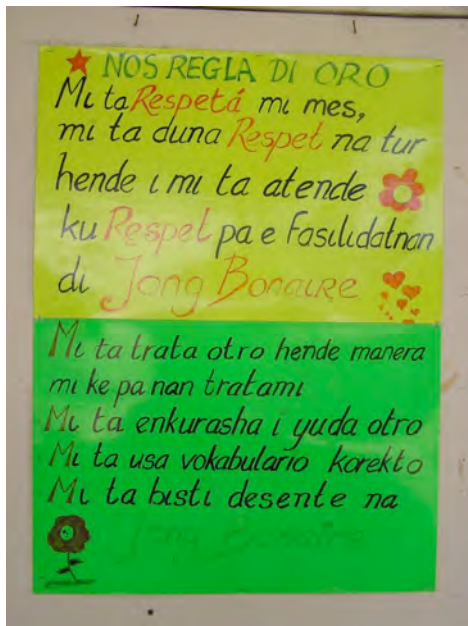 NOS REGLA DI ORO
Mi ta Respetá mi mes,
mi ta duna Respet na tur
hende i mi ta atende
ku Respet pa e Fasilidatnan
di Jong Bonaire
Mi ta trata otro hende manera
mi ke pa nan tratami
Mi ta enkurasha i yuda otro
Mi ta usa vokabulario korekto
Mi ta bisti desente na
Jong Bonaire